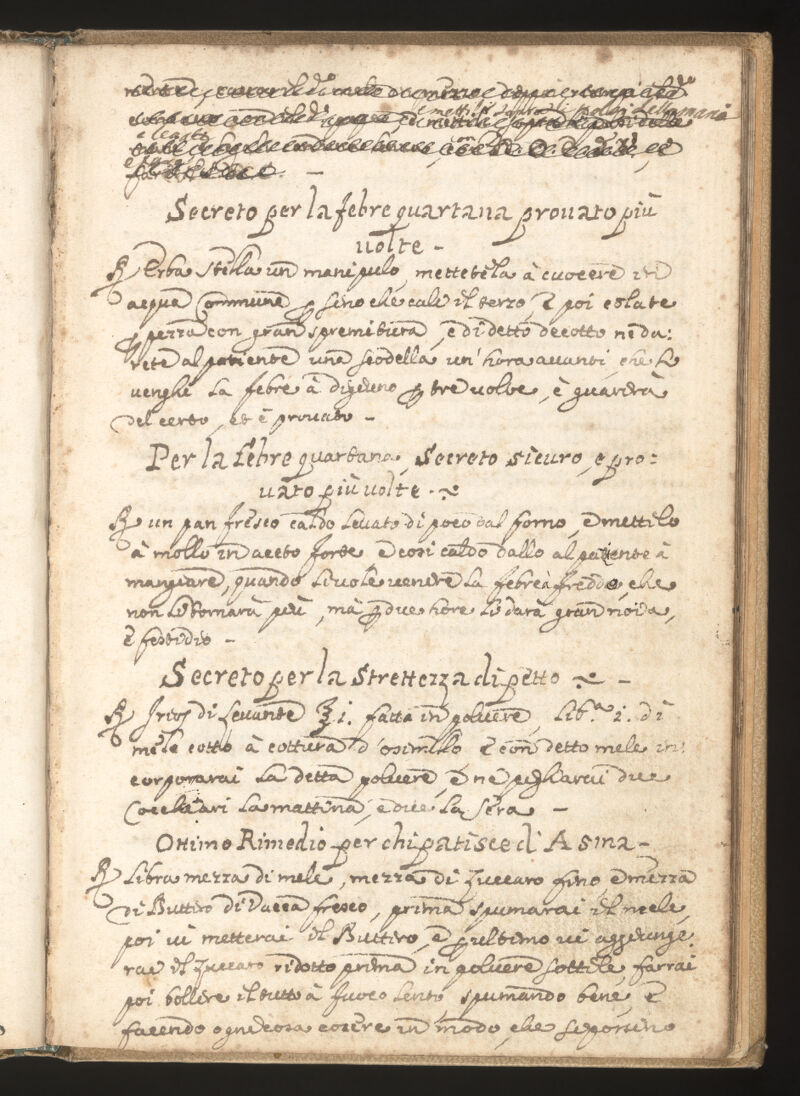 e mettili sopra li polsi della mano
e legati
Secreto per la febre quartana prouato più
uolte -
℞ Erba stella un manipulo, mettetela à cuocere in
acqua Commune ꝑ sino che cali il terzo, è poi colate
ꝑ pezza con gran spremitura, è di detto decotto ne da:
rete al patiente una scodella un'hora auanti, che li
uenghi la febre à digiuno ꝑ tre uolte, è guarirà
del certo, et è prouato -
Per la febre quartana, Secreto sicuro, e pro:
uato più uolte.
℞ un pan fresco caldo leuato di poco dal forno, è mettilo
à mollo in aceto forte è cosi caldo dallo al patiente à
mangiare, quando li uole uenire la febre à freddo, che
non li tornarà più, mà ꝑ due hore li darà gran noia,
è fastidio -
Secreto per la strettezza di petto -
℞ Ireos di Leuante ℥ i. fatta in poluere, Lib.ª i. di
mele cotto à cottura d'osimello è con detto mele in:
corporarai la detta poluere, è ne pigliarai due
Cocchiari la mattina, e due la sera -
Ottimo Rimedio per chi patisce d'Asma -
℞ Libra mezza di mele, mezza di zuccaro fino, è mezza
di Buttiro di Vacca fresco, prima spumarai il mele,
poi ui metterai il Buttiro, è ꝑ ultimo ui aggiunge
rai il zuccaro ridotto prima in poluere sottile, farrai
poi bollire il tutto à fuoco lento, spumando bene, è
facendo ogni cosa cocere in modo, che si possino